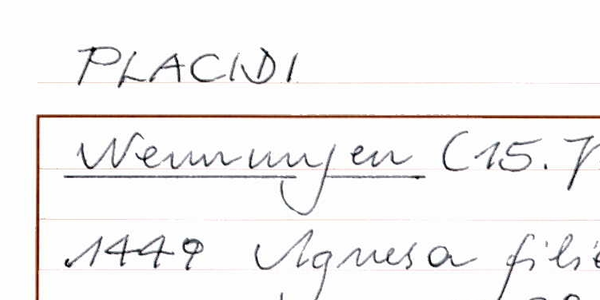 PLACIDI
Wennungen (15. J
1449 Agnesa filie